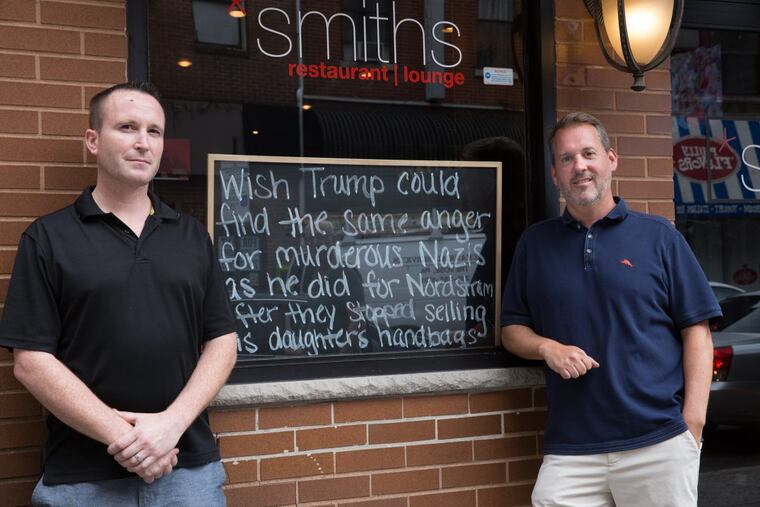 smiths
restaurant | lounge
Wish Trump could
find the same anger
for murderous Nazis
as he did for Nordstrom
after they stopped selling
his daughters handbags
PHILLY
FLAVORS